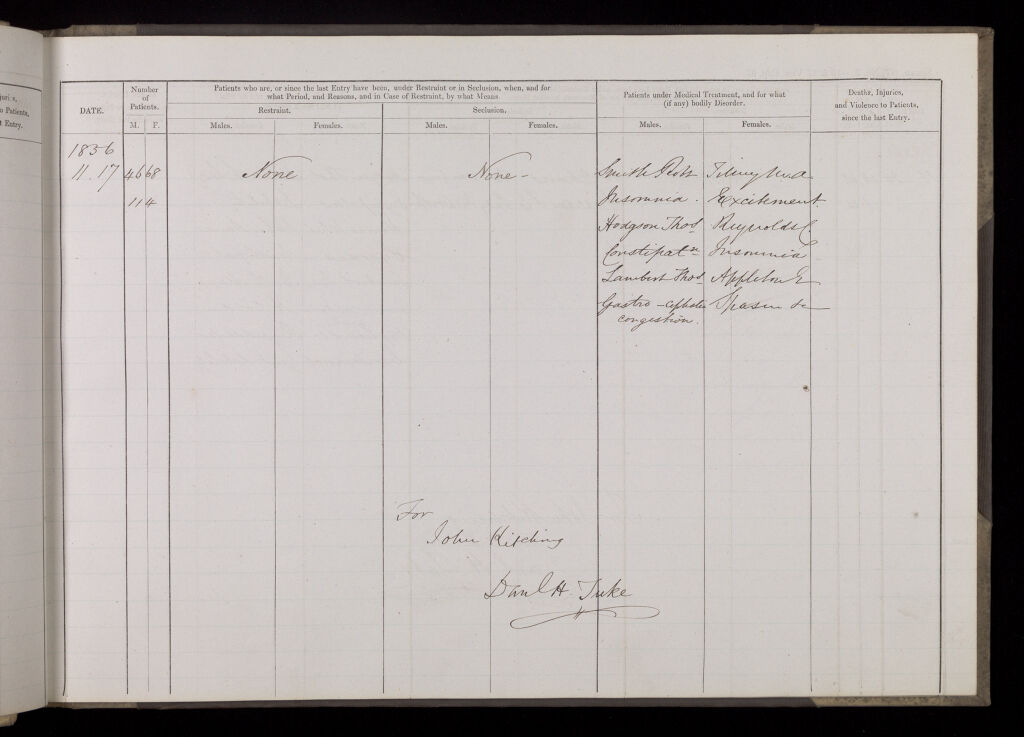 juries,
o Patients,
t Entry.
DATE.
Number
of
Patients.
M. F.
Patients who are, or since the last Entry have been, under Restraint or in Seclusion, when, and for
what Period, and Reasons, and in Case of Restraint, by what Means.
Restraint.
Males. Females.
Seclusion.
Males. Females.
Patients under Medical Treatment, and for what
(if any) bodily Disorder.
Males. Females.
Deaths, Injuries,
and Violence to Patients,
since the last Entry.
1856
11.17 46 68 None None - Smith Robt
114 Insomnia. Excitement
Hodgson Thos Reynolds C.
Constipatn Insomnia
Lambert Thos Appleton E
Gastro - Spasm &c
congestion.
For
John Kitching
Danl H. Tuke